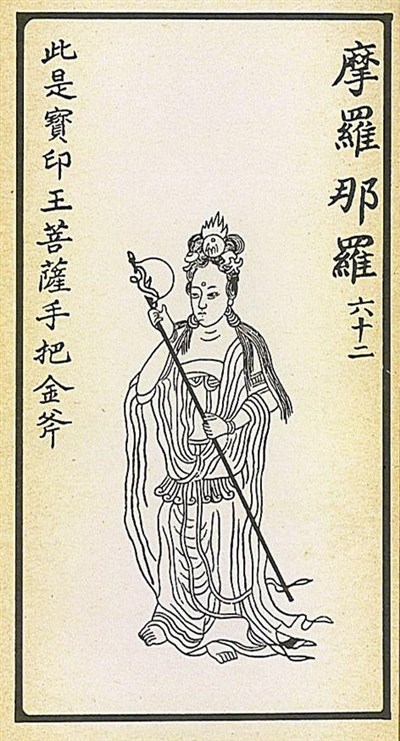 摩羅那羅 六十二
此是寶印王菩薩手把金斧